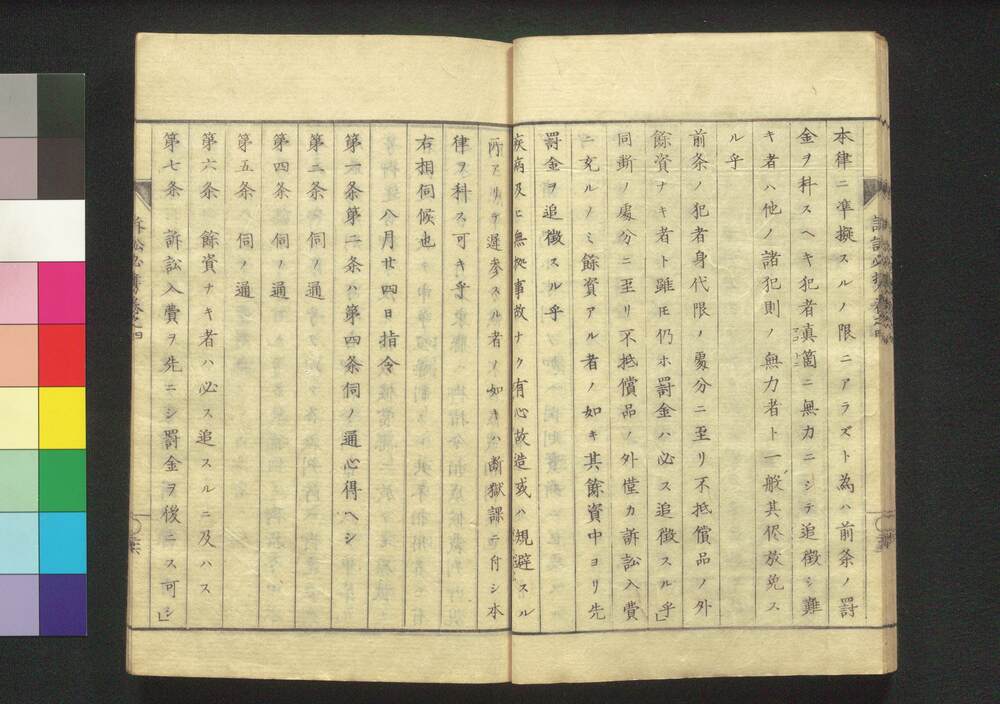 本律ニ準擬スルノ限ニアラズト為ハ前条ノ罰
金ヲ科スヘキ犯者真箇ニ無力ニシテ追徴シ難
キ者ハ他ノ諸犯則ノ無力者ト一般其侭放免ス
ル乎
前条ノ犯者身代限ノ處分ニ至リ不抵償品ノ外
餘資ナキ者ト雖𪜈仍ホ罰金ハ必ス追徴スル乎」
同断ノ處分ニ至リ不抵償品ノ外僅カ訴訟入費
ニ充ルノミ餘資アル者ノ如キ其餘資中ヨリ先
罰金ヲ追徴スル乎
疾病及ヒ無拠事故ナク有心故造或ハ規避スル
所アリテ遅参スル者ノ如キハ断獄課ニ付シ本
律ヲ科ス可キ乎
右相伺候也
八月廿四日指令
第一条第二条ハ第四条伺ノ通心得ヘシ
第三条 伺ノ通
第四条 伺ノ通
第五条 伺ノ通
第六条 餘資ナキ者ハ必ス追スルニ及ハス
第七条 訴訟入費ヲ先ニシ罰金ヲ後ニス可シ」